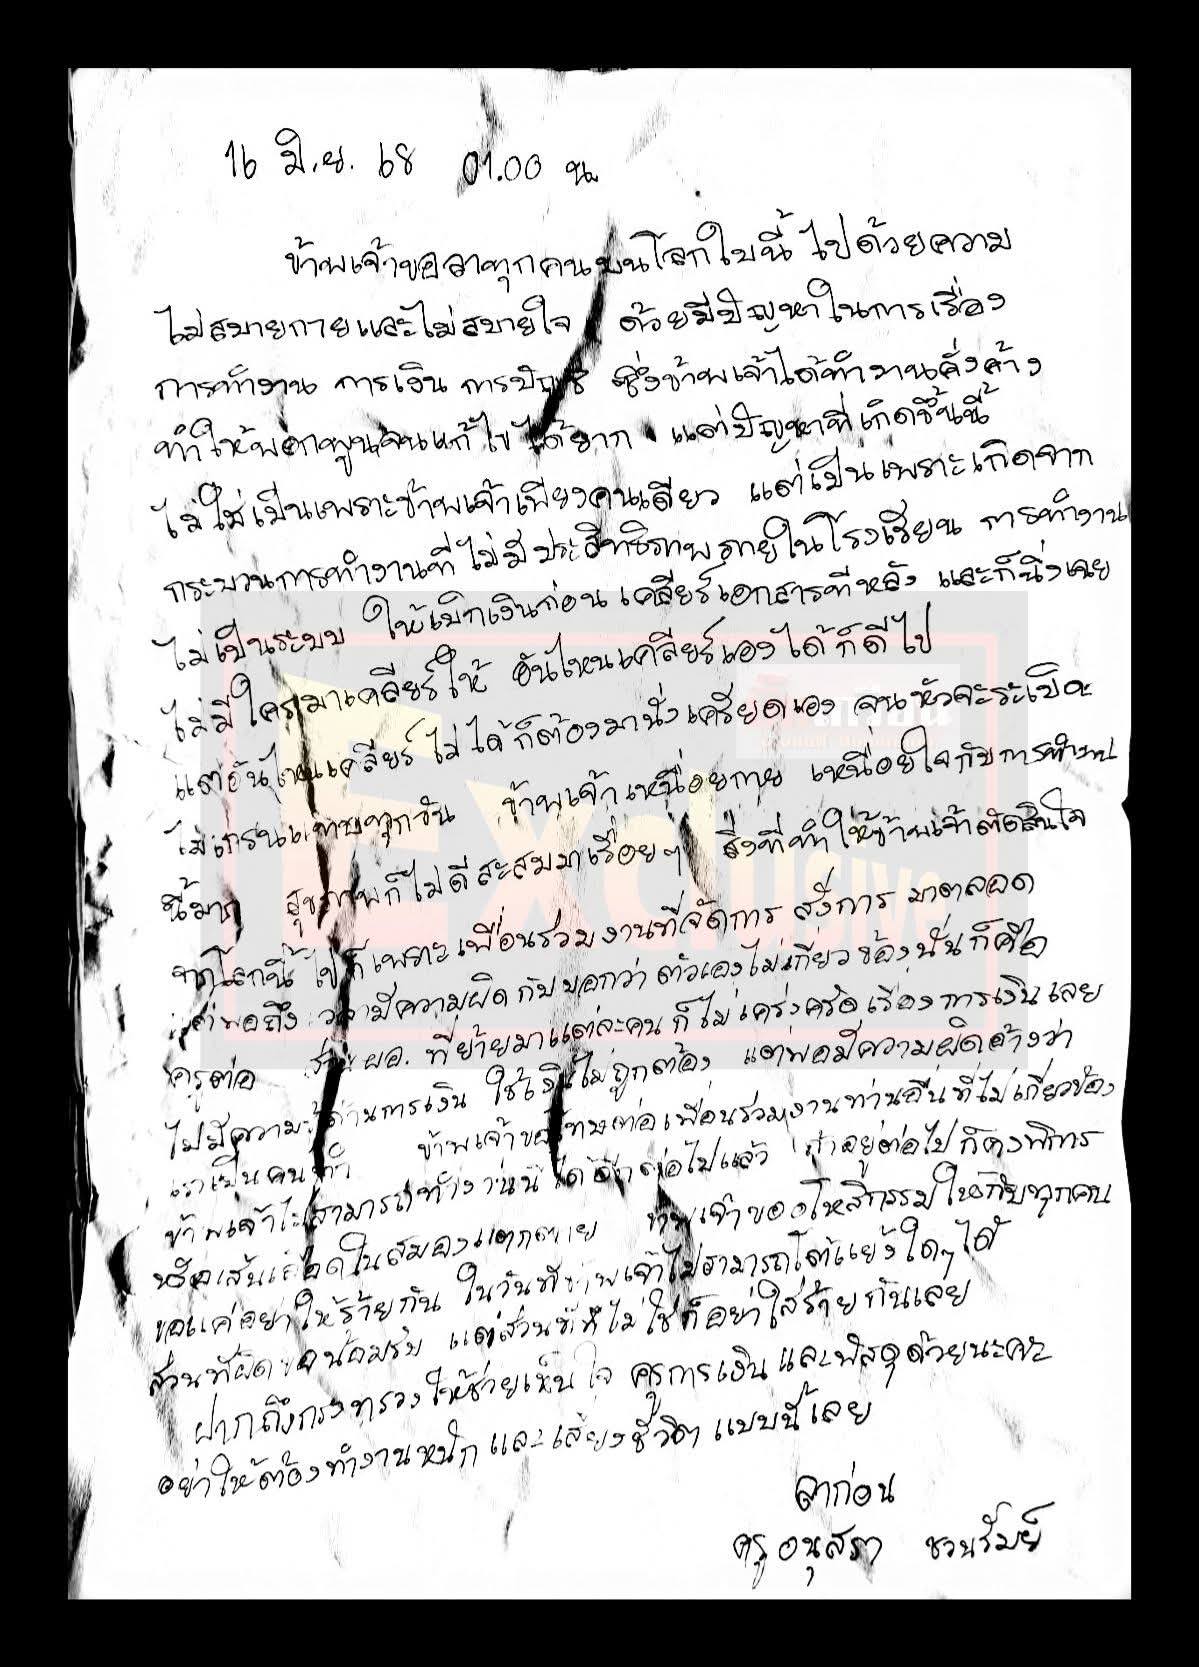 16 มิ.ย. 68 01.00 น.
ข้าพเจ้าขอลาทุกคนบนโลกใบนี้ ไปด้วยความ
ไม่สบายกายและไม่สบายใจ ด้วยมีปัญหาในการเรื่อง
การทำงาน การเงิน การบัญชี ซึ่งข้าพเจ้าได้ทำงานคั่งค้าง
ทำให้พอกพูนจนแก้ไขได้ยาก แต่ปัญหาที่เกิดขึ้นนี้
ไม่ใช่เป็นเพราะข้าพเจ้าเพียงคนเดียว แต่เป็นเพราะเกิดจาก
กระบวนการทำงานที่ไม่มีประสิทธิภาพภายในโรงเรียน การทำงาน
ไม่เป็นระบบ ให้เบิกเงินก่อน เคลียร์เอกสารทีหลัง และก็นิ่งเฉย
ไม่มีใครมาเคลียร์ให้ อันไหนเคลียร์เองได้ก็ดีไป
แต่อันไหนเคลียร์ไม่ได้ก็ต้องมานั่งเครียดเอง จนหัวจะระเบิด
ไมเกรนแทบทุกวัน ข้าพเจ้าเหนื่อยกาย เหนื่อยใจกับการทำงาน
นี้มาก สุขภาพก็ไม่ดีสะสมมาเรื่อยๆ สิ่งที่ทำให้ข้าพเจ้าตัดสินใจ
จากโลกนี้ไปก็เพราะเพื่อนร่วมงานที่จัดการ สั่งการ มาตลอด
แต่พอถึงเวลามีความผิดกับบอกว่าตัวเองไม่เกี่ยวข้องนั่นก็คือ
ครูต่อ ส่วน ผอ. ที่ย้ายมาแต่ละคนก็ไม่เคร่งครัดเรื่องการเงินเลย
ไม่มีความรู้ด้านการเงิน ใช้เงินไม่ถูกต้อง แต่พอมีความผิดอ้างว่า
เราเป็นคนทำ ข้าพเจ้าขอโทษต่อเพื่อนร่วมงานท่านอื่นที่ไม่เกี่ยวข้อง
ข้าพเจ้าไม่สามารถทำงานนี้ได้อีกต่อไปแล้ว ถ้าอยู่ต่อไปก็คงพิการ
หรือเส้นเลือดในสมองแตกตาย ข้าพเจ้าขออโหสิกรรมให้กับทุกคน
ขอแค่อย่าให้ร้ายกัน ในวันที่ข้าพเจ้าไม่สามารถโต้แย้งใดๆได้
ส่วนที่ผิดขอน้อมรับ แต่ส่วนที่ไม่ใช่ก็อย่าใส่ร้ายกันเลย
ฝากถึงกระทรวงให้ช่วยเห็นใจ ครูการเงินและพัสดุด้วยนะคะ
อย่าให้ต้องทำงานหนักและเสี่ยงชีวิตแบบนี้เลย
ลาก่อน
ครูอนุสรา ชวนรัมย์
Exclusive